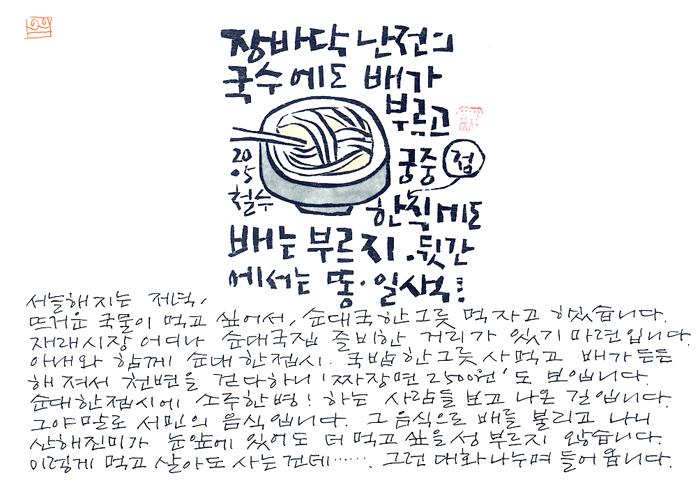 장바닥 난전의
국수에도 배가
부르고
궁중 첩
한식에도
20
05
철수
배는 부르지. 뒷간
에서는 똥·일색!
서늘해지는 저녁,
뜨거운 국물이 먹고 싶어서, 순대국 한그릇 먹자고 했습니다.
재래시장 어디나 순대국집 즐비한 거리가 있기 마련입니다.
아내와 함께 순대 한접시. 국밥 한그릇 사먹고 배가 든든
해져서 천변을 걷다하니 '짜장면 2500원'도 보입니다.
순대 한접시에 소주 한병! 하는 사람들 보고 나온 길입니다.
그야말로 서민의 음식입니다. 그 음식으로 배를 불리고 나니
산해진미가 눈앞에 있어도 더 먹고 싶을 성 부르지 않습니다.
이렇게 먹고 살아도 사는건데……. 그런 대화 나누며 들어옵니다.